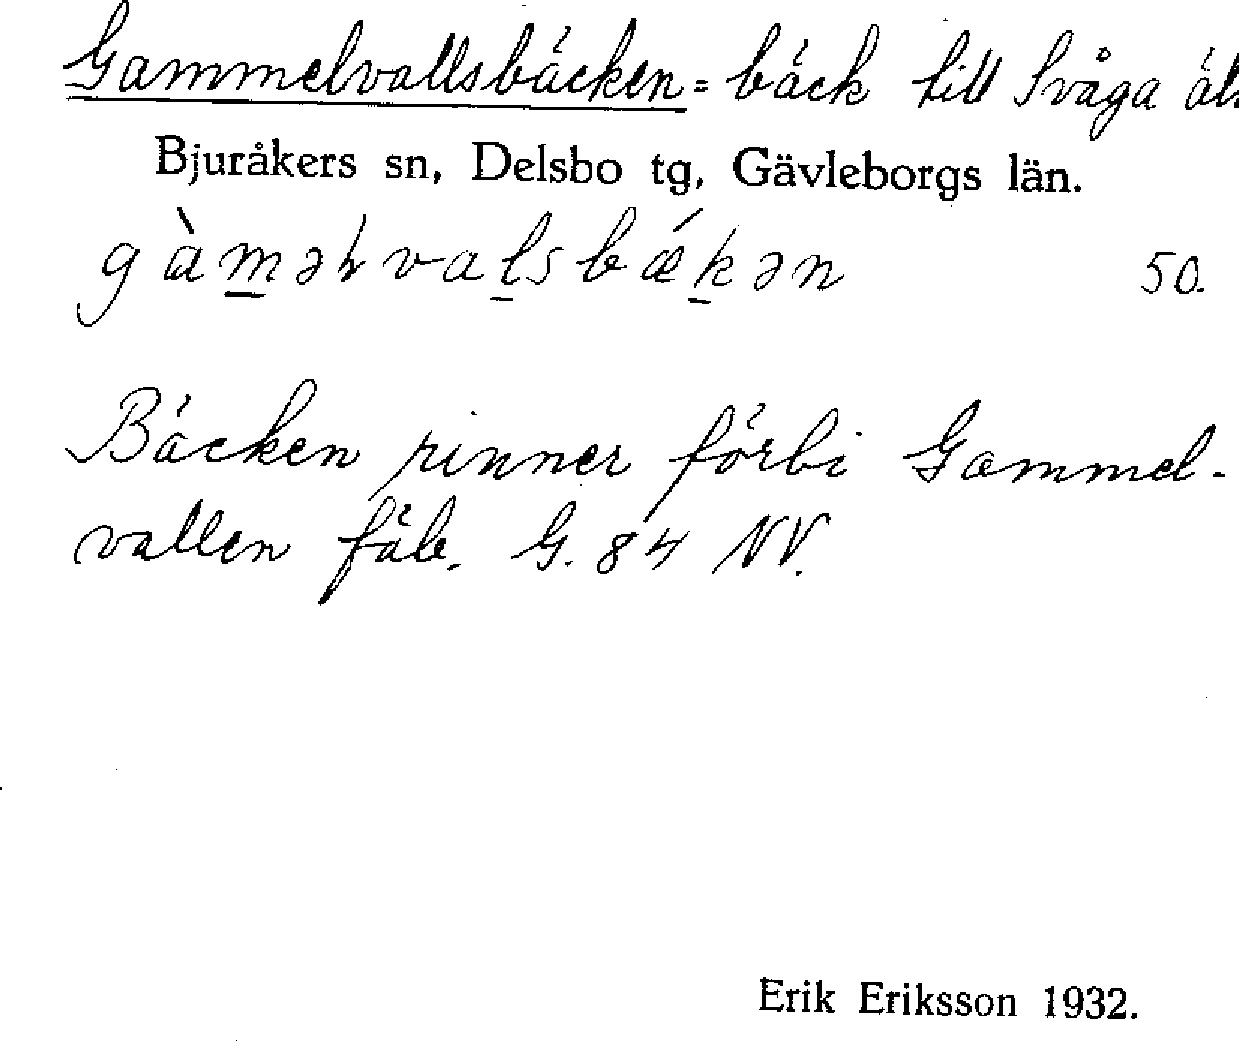 Gammelvallsbäcken = bäck till Svåga äl
Bjuråkers sn, Delsbo tg, Gävleborgs län.
gàməɫvalsbǽkən 50.
Bäcken rinner förbi Gammel-
vallen fäb. G. 84 NV.
Erik Eriksson 1932.